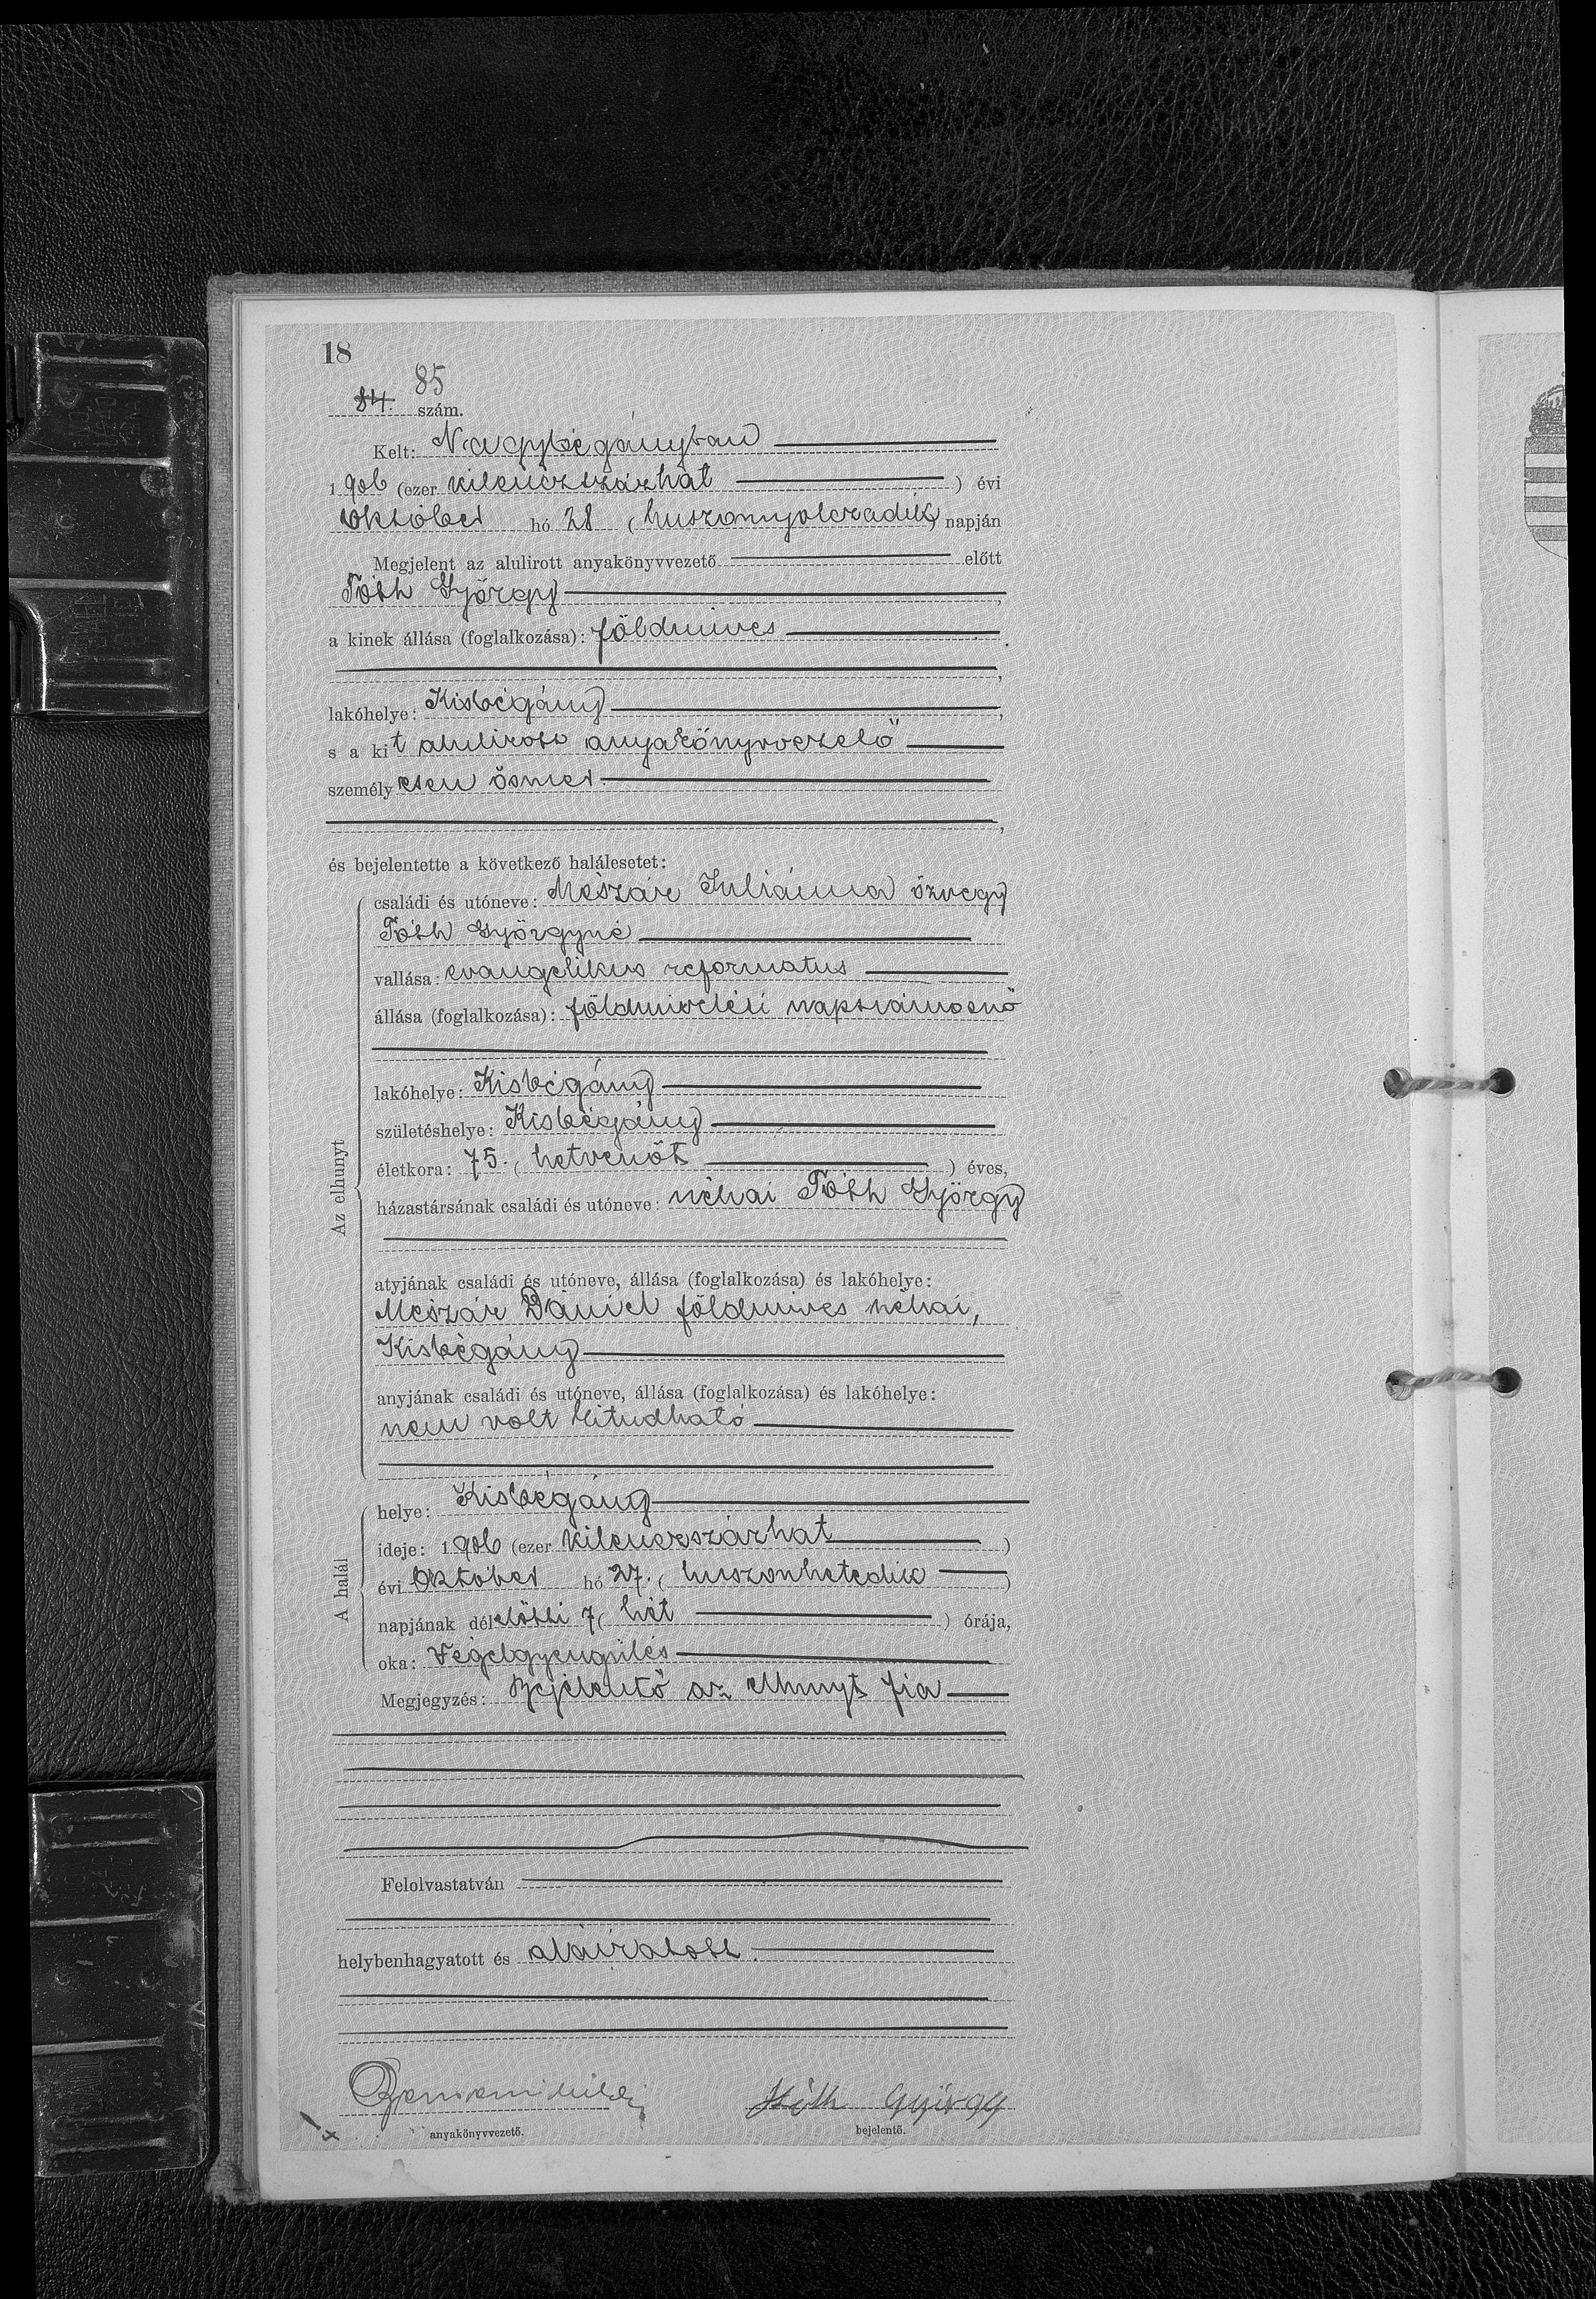 18
85
84. szám.
Kelt: Nagybégányban
1906 (ezer kilenczszázhat ) évi
Október hó 28 (huszonnyolczadik) napján
Megjelent az alulirott anyakönyvvezető előtt
Tóth György,
a kinek állása (foglalkozása): földmives.
lakóhelye: Kisbégány,
s a kit alulirott anyakönyvvezető
személyesen ösmer.
és bejelentette a következő halálesetet:
Az elhunyt
családi és utóneve: Mészár Juliánna özvegy
Tóth Györgyné
vallása: evangelikus reformatus
állása (foglalkozása): földmivelési napszámosnő
lakóhelye: Kisbégány
születéshelye: Kisbégány
életkora: 75. (hetvenöt ) éves,
házastársának családi és utóneve: néhai Tóth György
atyjának családi és utóneve, állása (foglalkozása) és lakóhelye:
Mészár Dániel földmives néhai,
Kisbégány
anyjának családi és utóneve, állása (foglalkozása) és lakóhelye:
nem volt kitudható
A halál
helye: Kisbégány
ideje: 1906 (ezer kilenczszázhat )
évi Október hó 27. (huszonhetedik )
napjának délelőtti 7 (hét ) órája,
oka: Végelgyengülés
Megjegyzés: Bejelentő az elhunyt fia
Felolvastatván
helybenhagyatott és aláiratott.
Tóth György
anyakönyvvezető. bejelentő.